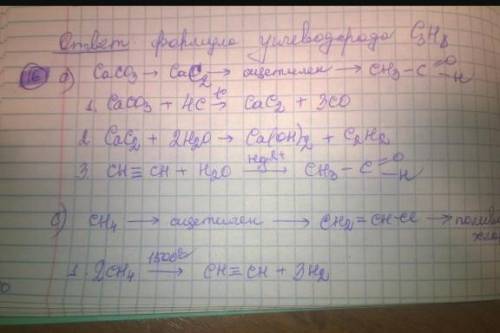 Ответ формула углеводорода C3H8
16 а) CaCO3 → CaC2 → ацетилен → CH3-C=O-H
1. CaCO3 + 4C →t CaC2 + 3CO
2. CaC2 + 2H2O → Ca(OH)2 + C2H2
3. CH≡CH + H2O →Hg2+ CH3-C=O-H
б) CH4 → ацетилен → CH2=CH-Cl →
1. 2CH4 →1500° CH≡CH + 3H2